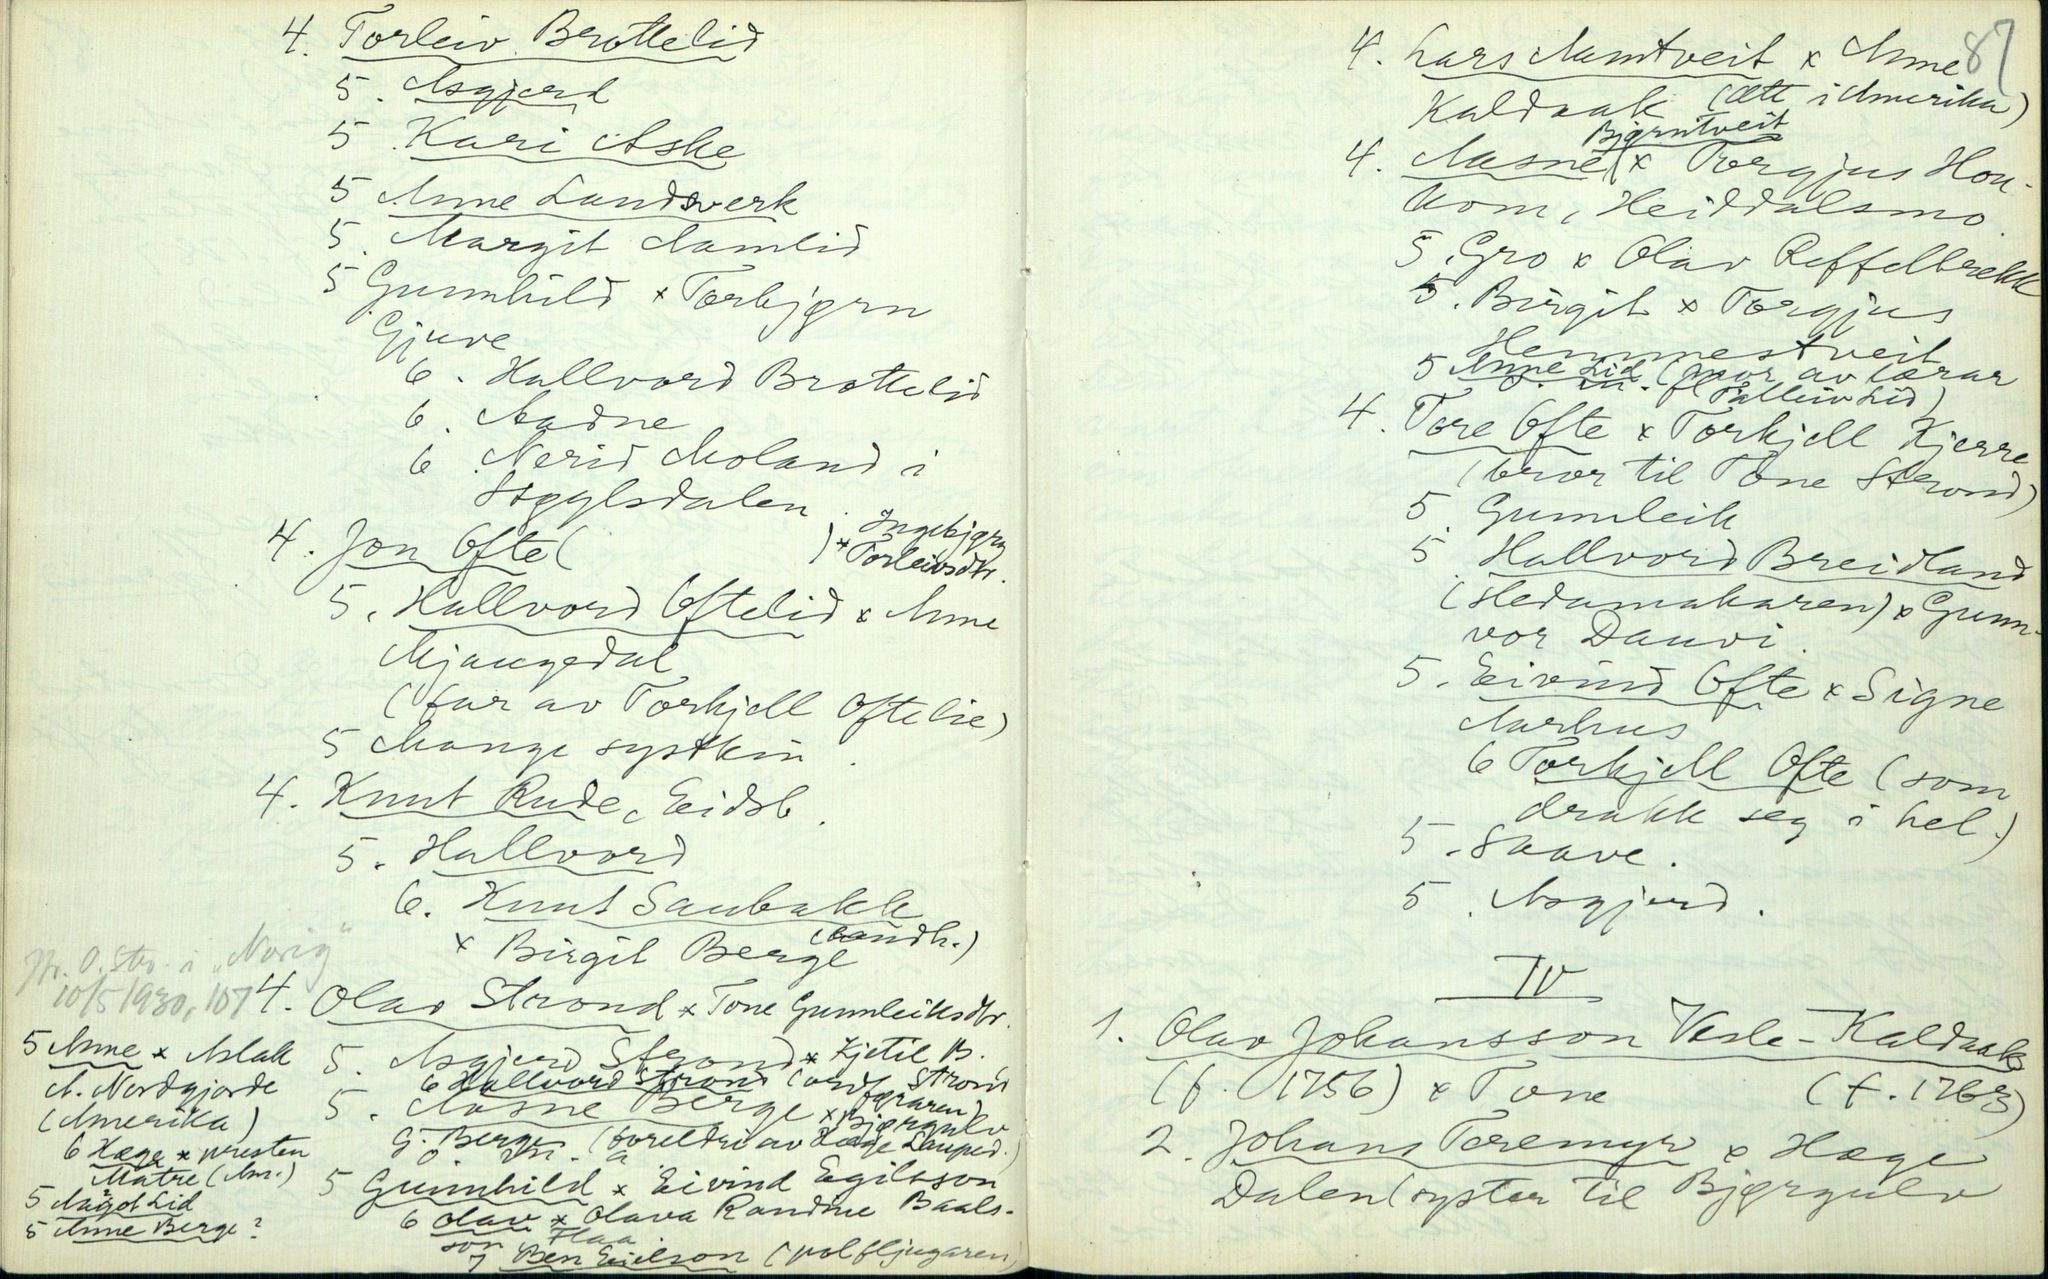 4. Torleiv Brottelid
5. Asgjerd
5. Kari Aske
5 Anne Landsverk
5. Margit Aamlid
5 Gunnhild x Torbjørn
Gjuve
6. Hallvord Brottelid
6. Aadne
6 Nerid Moland i
Skyylsdalen.
4. Jon Ofte (          ) x Ingebjørg
Torleivsdtr.
5. Hallvord Oftelid x Anne
Mjaugedal
(far av Torkjell Oftelie)
5 Mange systkin.
4. Knut Rude, Eidsb.
5. Hallvord
6. Knut Saubakk
x Birgit Berge (Landh.)
Jfr. O. Str. i "Norig"
10/5 1930, 107
4. Olav Strond x Tone Gunnleiksdtr.
5. Asgjerd Strond x Kjetil B. Strond
6 Hallvord Strond (ordføraren)
5. Aasne Berge x Bjørgulv
G. Berge (foreldri av Hæge Lauped.)
5 Gunnhild x Eivind Egilsson
6 Olav x Olava Randine Baals-
son Flaa
7 Ben Eielson (polfljugaren)
5 Anne x Aslak
A. Nordgjorde
(Amerika)
6 Hæge x presten
Matre (Am.)
5 Aagot Lid
5 Anne Berge?
87
4. Lars Aamtveit x Anne
Kaldaak (ætt i Amerika)
4. Aasne Bjørntveit x Torgjus Hou-
kom, Heiddalsmo.
5. Gro x Olav Reffelbrekk
5. Birgit x Torgjus
Hemmestveit
5 Anne Lid (mor av lærar
Talleiv Lid)
4. Tore Ofte x Torkjell Kjerre
(bror til Tone Strond)
5. Gunnleik
5. Hallvord Breidland
(Sledamakaren) x Gunn-
vor Dauvi.
5. Eivind Ofte x Signe
Aarhus
6 Torkjell Ofte (som
drakk seg i hel.)
5. Saave.
5. Asgjerd.
IV
1. Olav Johansson Vesle-Kaldaak
(f. 1756) x Tone          (f. 1763)
2. Johans Toremyr x Hæge
Dalen (syster til Bjørgulv